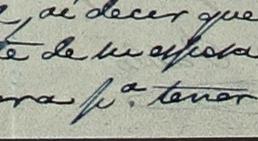 oí decir que
te de su esposa
ra pª. tener